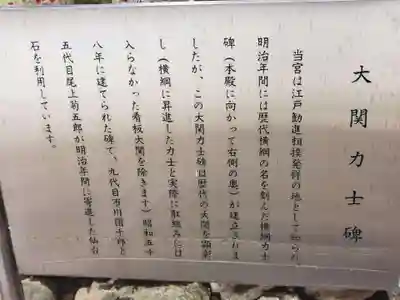 大関力士碑
当宮は江戸勧進相撲発祥の地として知られ、
明治年間には歴代横綱の名を刻んだ横綱力士
碑(本殿に向かって右側の奥)が建立されま
したが、この大関力士碑は歴代の大関を顕彰
し(横綱に昇進した力士と実際に取組みには
入らなかった看板大関を除きます)昭和五十
八年に建てられた碑で、九代目市川団十郎と
五代目尾上菊五郎が明治年間に寄進した仙台
石を利用しています。